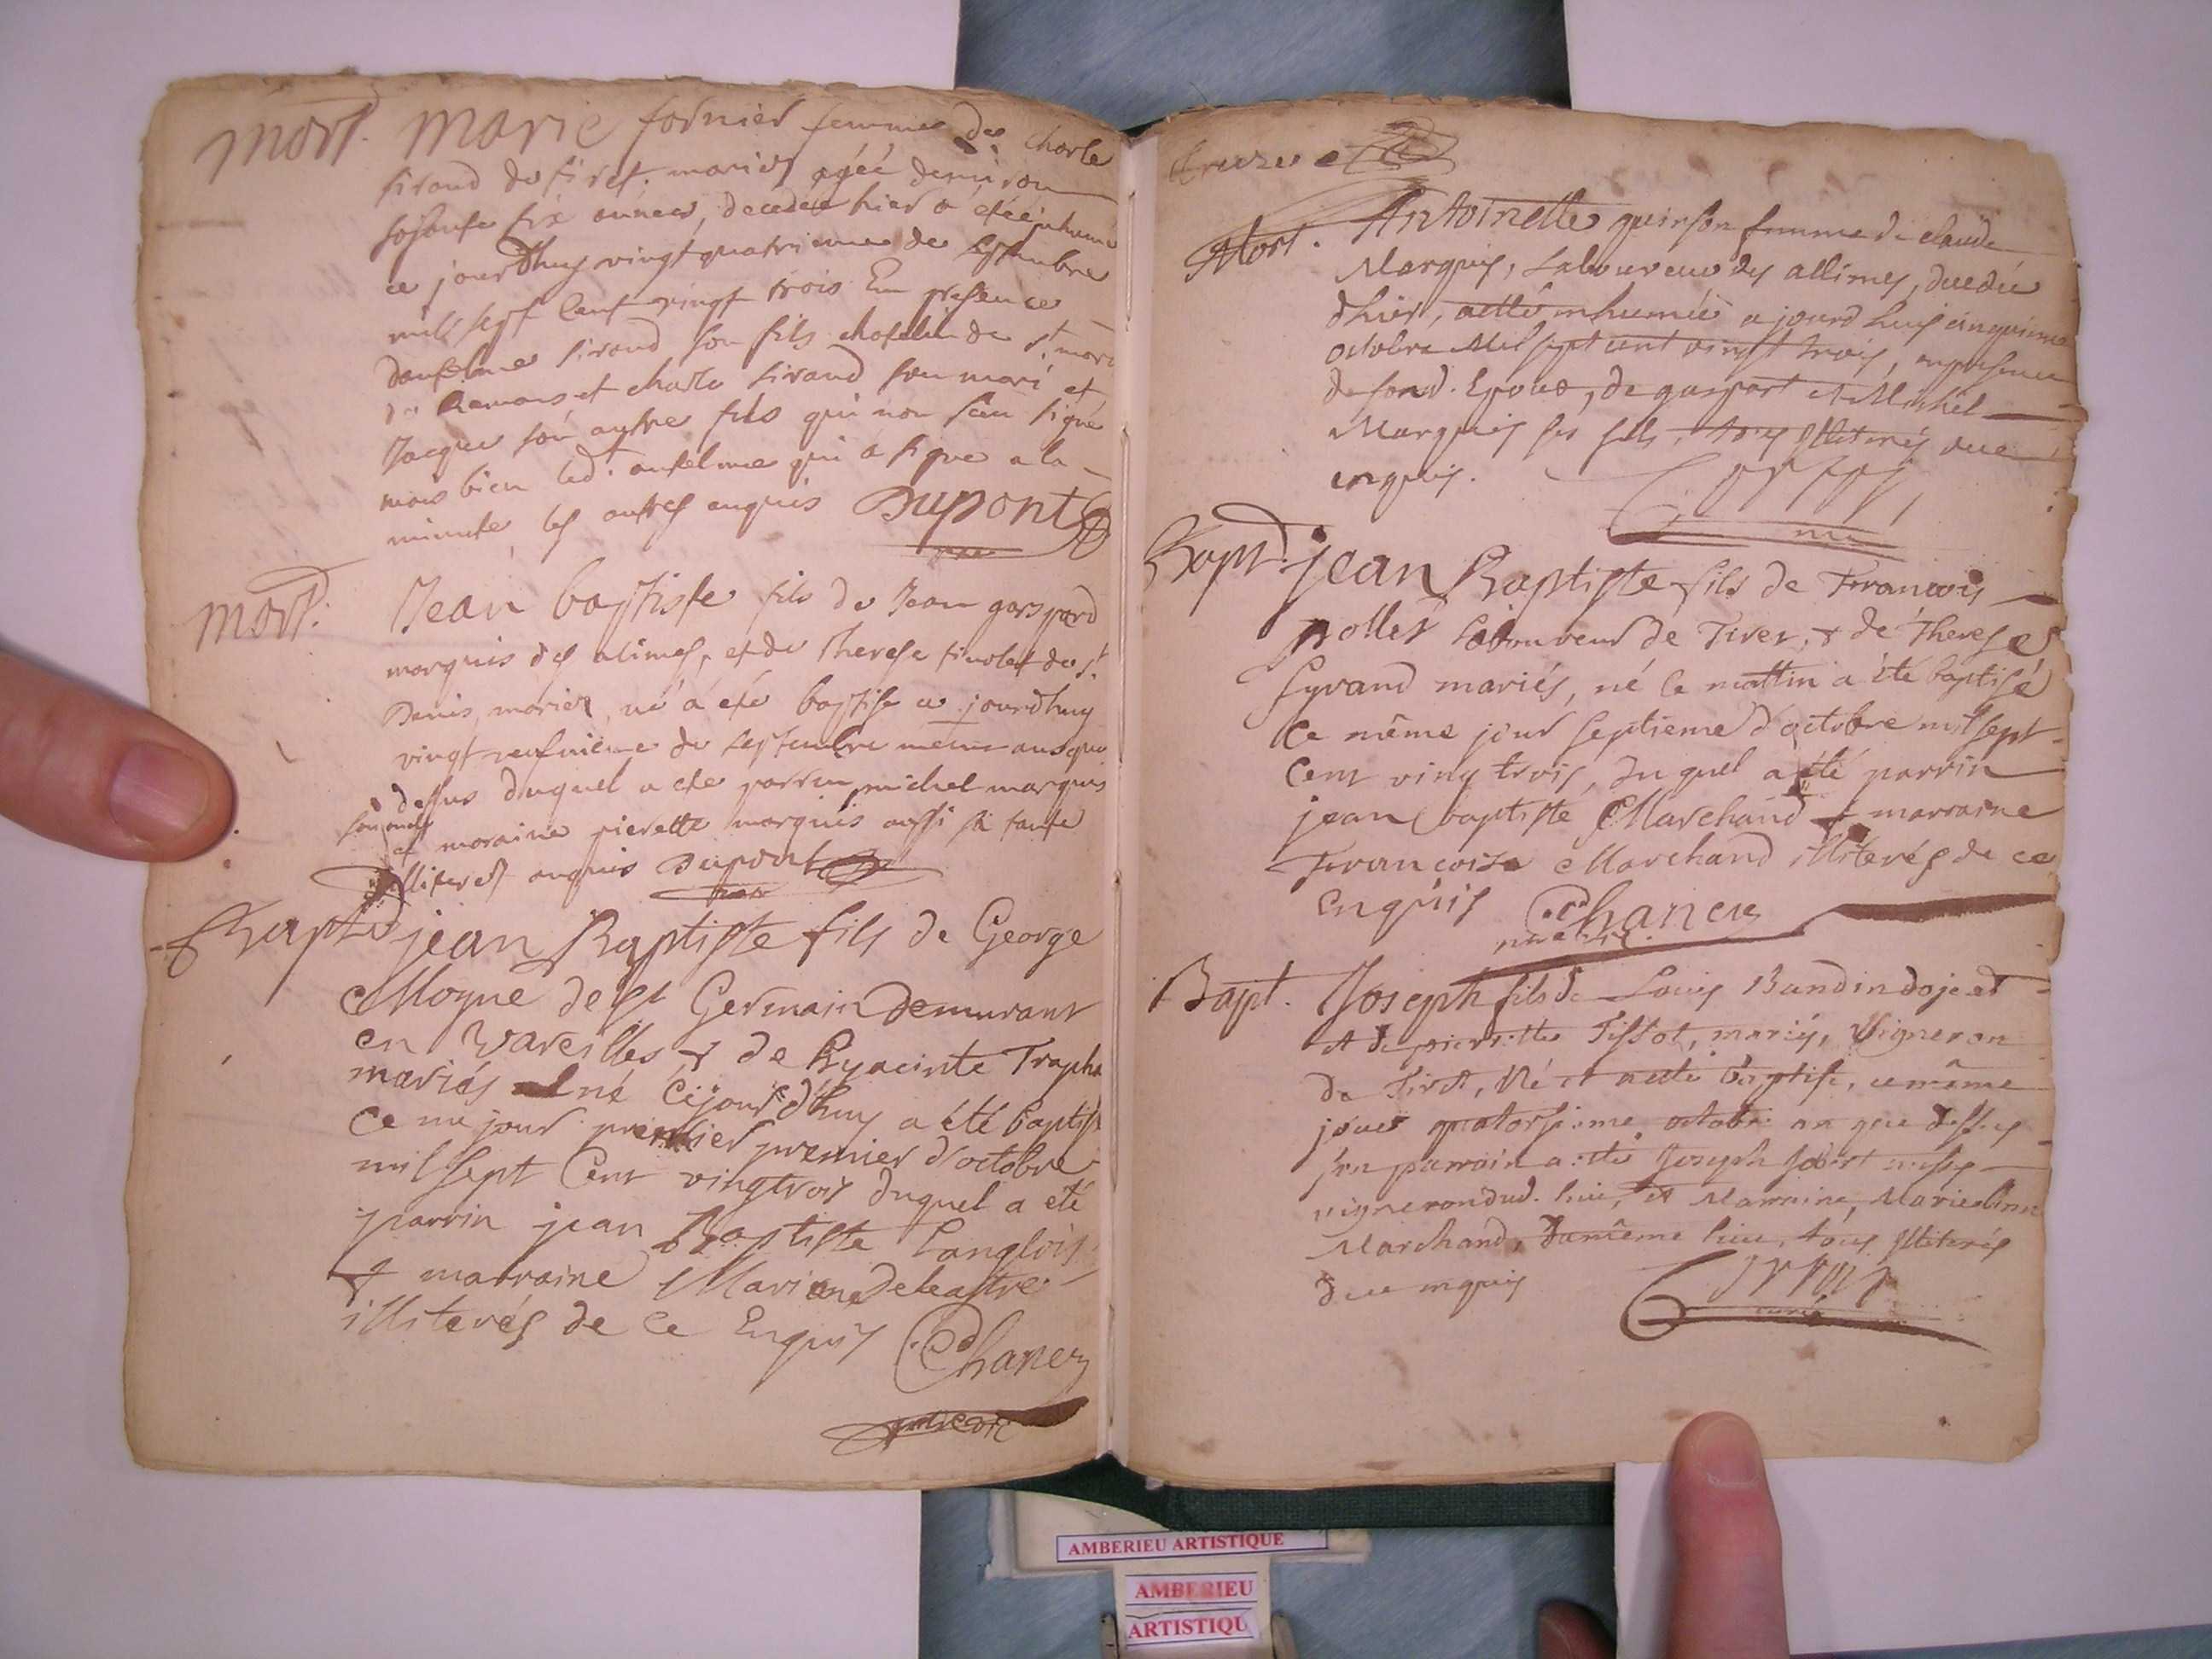 mort. Marie fornier femme de charle
sirand de tiret. mariés agée denviron
soisante six années, decedée hier a eté inhumé
ce jourdhuy vingt quatrieme de septembre
mil sept cent vingt trois En presence
danselme sirand son fils chatelin de st.
et charle sirand son mari et
Jacque son autre fils qui non seu signé
mais bien led. anselme qui a signe a la
minute, les autres enquis Dupont
mort. Jean baptiste fils de Jean gaspard
marquis des alimes, et de Therese tinolet de st.
Denis, mariez, né a eté baptise ce jourdhuy
vingt neufvieme de septembre meme an que
dessus duquel a ete parrin michel marquis
son oncle
et moraine pierette marquis aussi sa tante
illiteres enquis Dupont
Bapt. jean Baptiste fils de George
Moyne de st Germain demurant
en Vareilles, & de Hyacinte Trapha
mariés né cejourd'huy a été baptisé
ce me jour premier premier d'octobre
mil sept Cent vingtrois duquel a eté
parrin jean Baptiste Langlois
& marraine Mariane delastre
illiterés de ce Enquis Chanez
Mort. Antoinette quinson femme de claude
Marquis, Laboureur des allimes, decedée
dhier, aetté inhumée ajourdhuis cinquime
octobre Mil sept cent vingt trois, enpresence
desond. Epoux, de gaspart et Michel
Marquis ses fils, tous illiterés de ce
enquis.
curé
Bapt. jean Baptiste fils de Francois
rollet Laboureur de Tiret, & de Therese
Syrand mariés, né le mattin a été baptisé
Ce même jour septieme d'octobre mil sept
Cent ving trois, duquel a été parrin
jean baptiste Marchand & marraine
Francoise Marchand illiterés de ce
Enquis Chanez
Bapt. Joseph fils de Louis Bandin
et de pierrette Tissot, mariés, Vigneron
de Tiret, Né et aetté Baptisé, cemême
jour quatorsieme octobre an que dessus
son parrain a etté Joseph
vigneron dud. lieu, et Marraine, Marie
Marchand, dumême lieu, tous illiterés
de ce enquis
curé
AMBERIEU ARTISTIQUE
AMBERIEU
ARTISTIQU